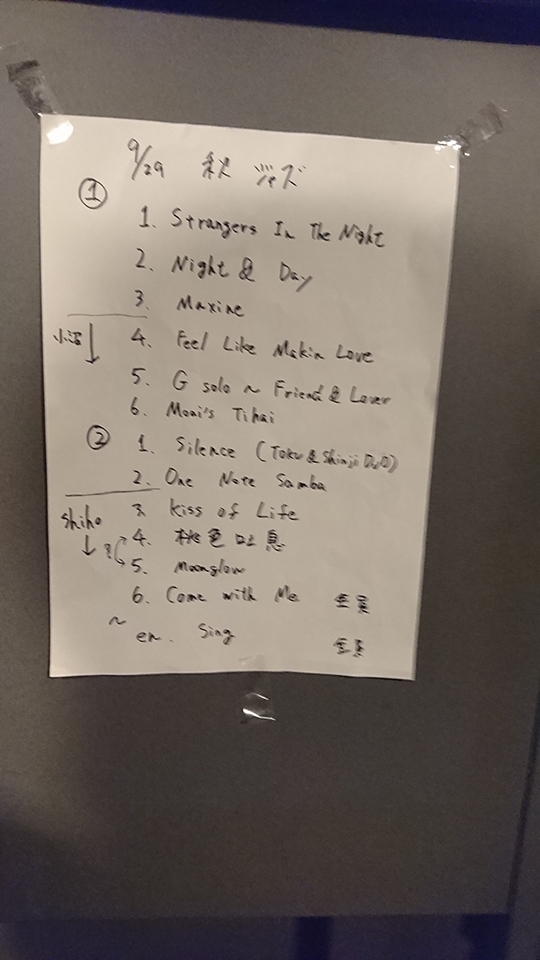 9/29 秋 ジャズ
①
1. Strangers In The Night
2. Night & Day
3. Maxine
小沼↓ 4. Feel Like Makin Love
5. G solo ~ Friend & Lover
6. Moai's Tihai
②
1. Silence (Toku & Shinji DUO)
2. One Note Samba
3. Kiss of Life
Shiho ↓
4. 桃色吐息
?
5. Moonglow
6. Come with Me 全員
~ en. Sing 全員